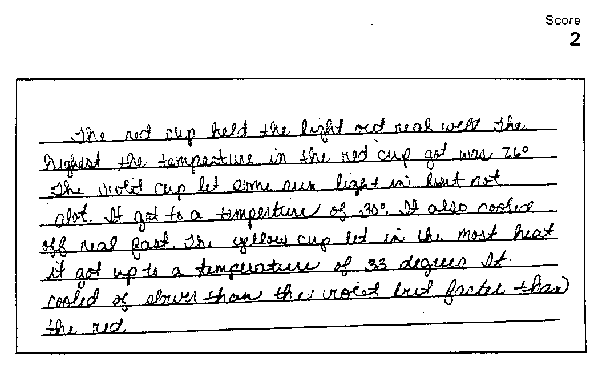 Score
2
The red cup held the light out real well. The
highest the temperture in the red cup got was 26°
The violet cup let some sun light in but not
alot. It got to a temperture of 30°. It also cooled
off real fast. The yellow cup let in the most heat
it got up to a temperature of 33 degrees It
cooled of slower than the violet but faster than
the red